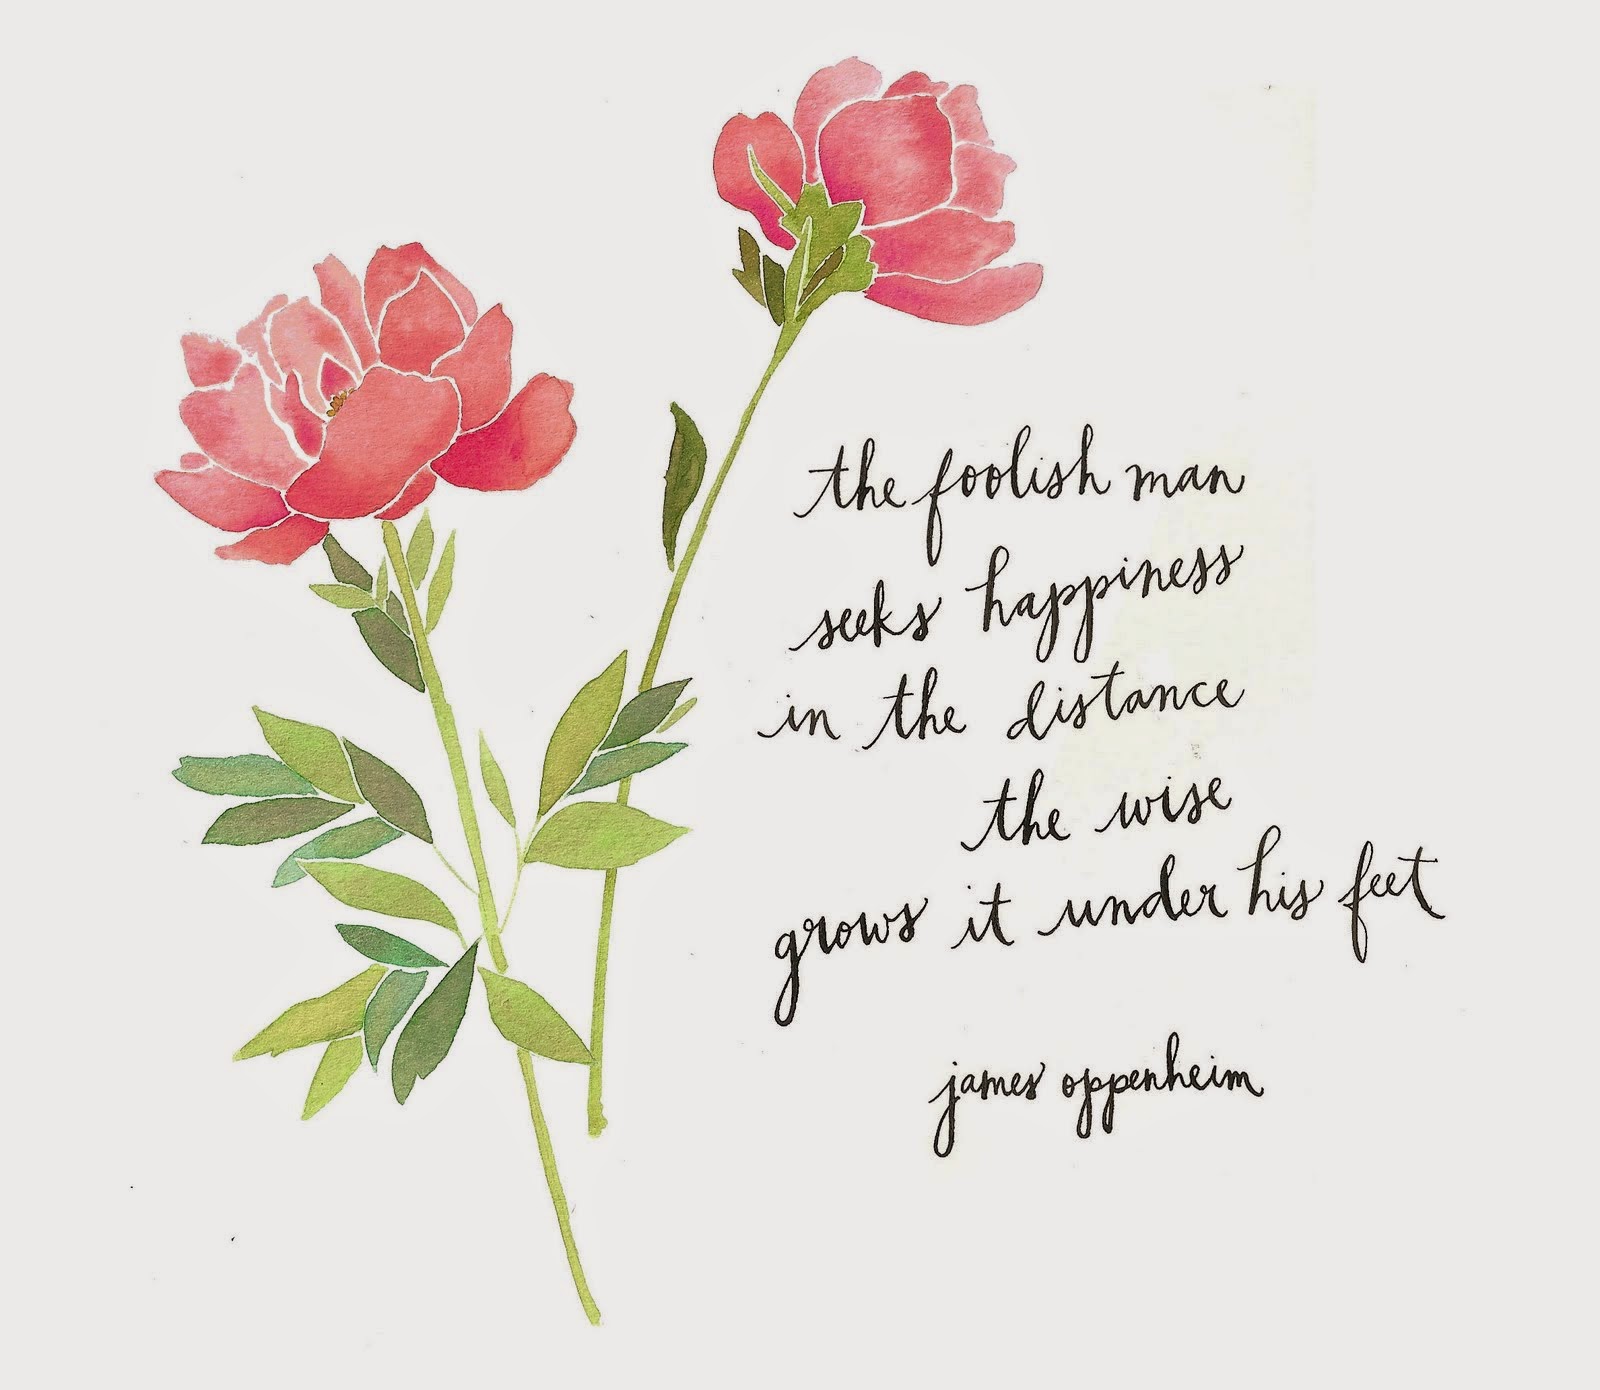 the foolish man
seeks happiness
in the distance
the wise
grows it under his feet
james oppenheim